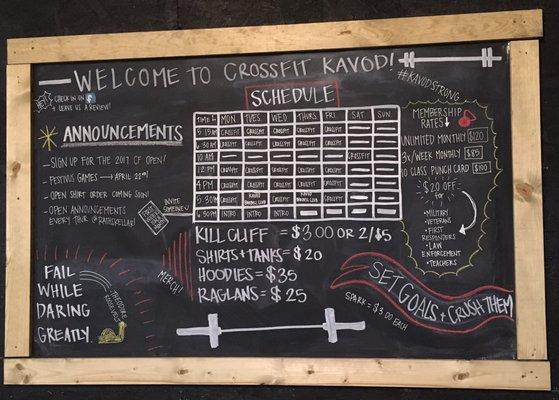 WELCOME TO CROSSFIT KAVOD!
#KAVODSTRONG
CHECK IN ON f
+ LEAVE US A REVIEW!
ANNOUNCEMENTS
- SIGN UP FOR THE 2017 CF OPEN!
- FESTIVUS GAMES → APRIL 22ND!
- OPEN SHIRT ORDER COMING SOON!
- OPEN ANNOUNCEMENTS
EVERY THUR @ RATHSKELLAR!
INVITE
SOMEONE
SCHEDULE
TIME MON TUES WED THURS FRI SAT SUN
5:15AM CROSSFIT CROSSFIT CROSSFIT CROSSFIT CROSSFIT — —
8:30AM CROSSFIT CROSSFIT CROSSFIT CROSSFIT CROSSFIT — —
10 AM — — — — — CROSSFIT —
12 PM CROSSFIT CROSSFIT CROSSFIT CROSSFIT CROSSFIT — —
4 PM CROSSFIT CROSSFIT CROSSFIT CROSSFIT CROSSFIT — —
5:30 PM CROSSFIT CROSSFIT CROSSFIT CROSSFIT CROSSFIT — —
6:30PM INTRO INTRO INTRO — — — —
MEMBERSHIP
RATES
UNLIMITED MONTHLY $120
3X/WEEK MONTHLY $85
10 CLASS PUNCH CARD $100
$20 OFF
FOR
- MILITARY
- VETERANS
- FIRST
RESPONDERS
- LAW
ENFORCEMENT
- TEACHERS
MERCH!
KILL CLIFF = $3.00 OR 2/$5
SHIRTS + TANKS = $20
HOODIES = $35
RAGLANS = $25
SPARK = $3.00 EACH
FAIL
WHILE
DARING
GREATLY.
THEODORE
ROOSEVELT
SET GOALS + CRUSH THEM